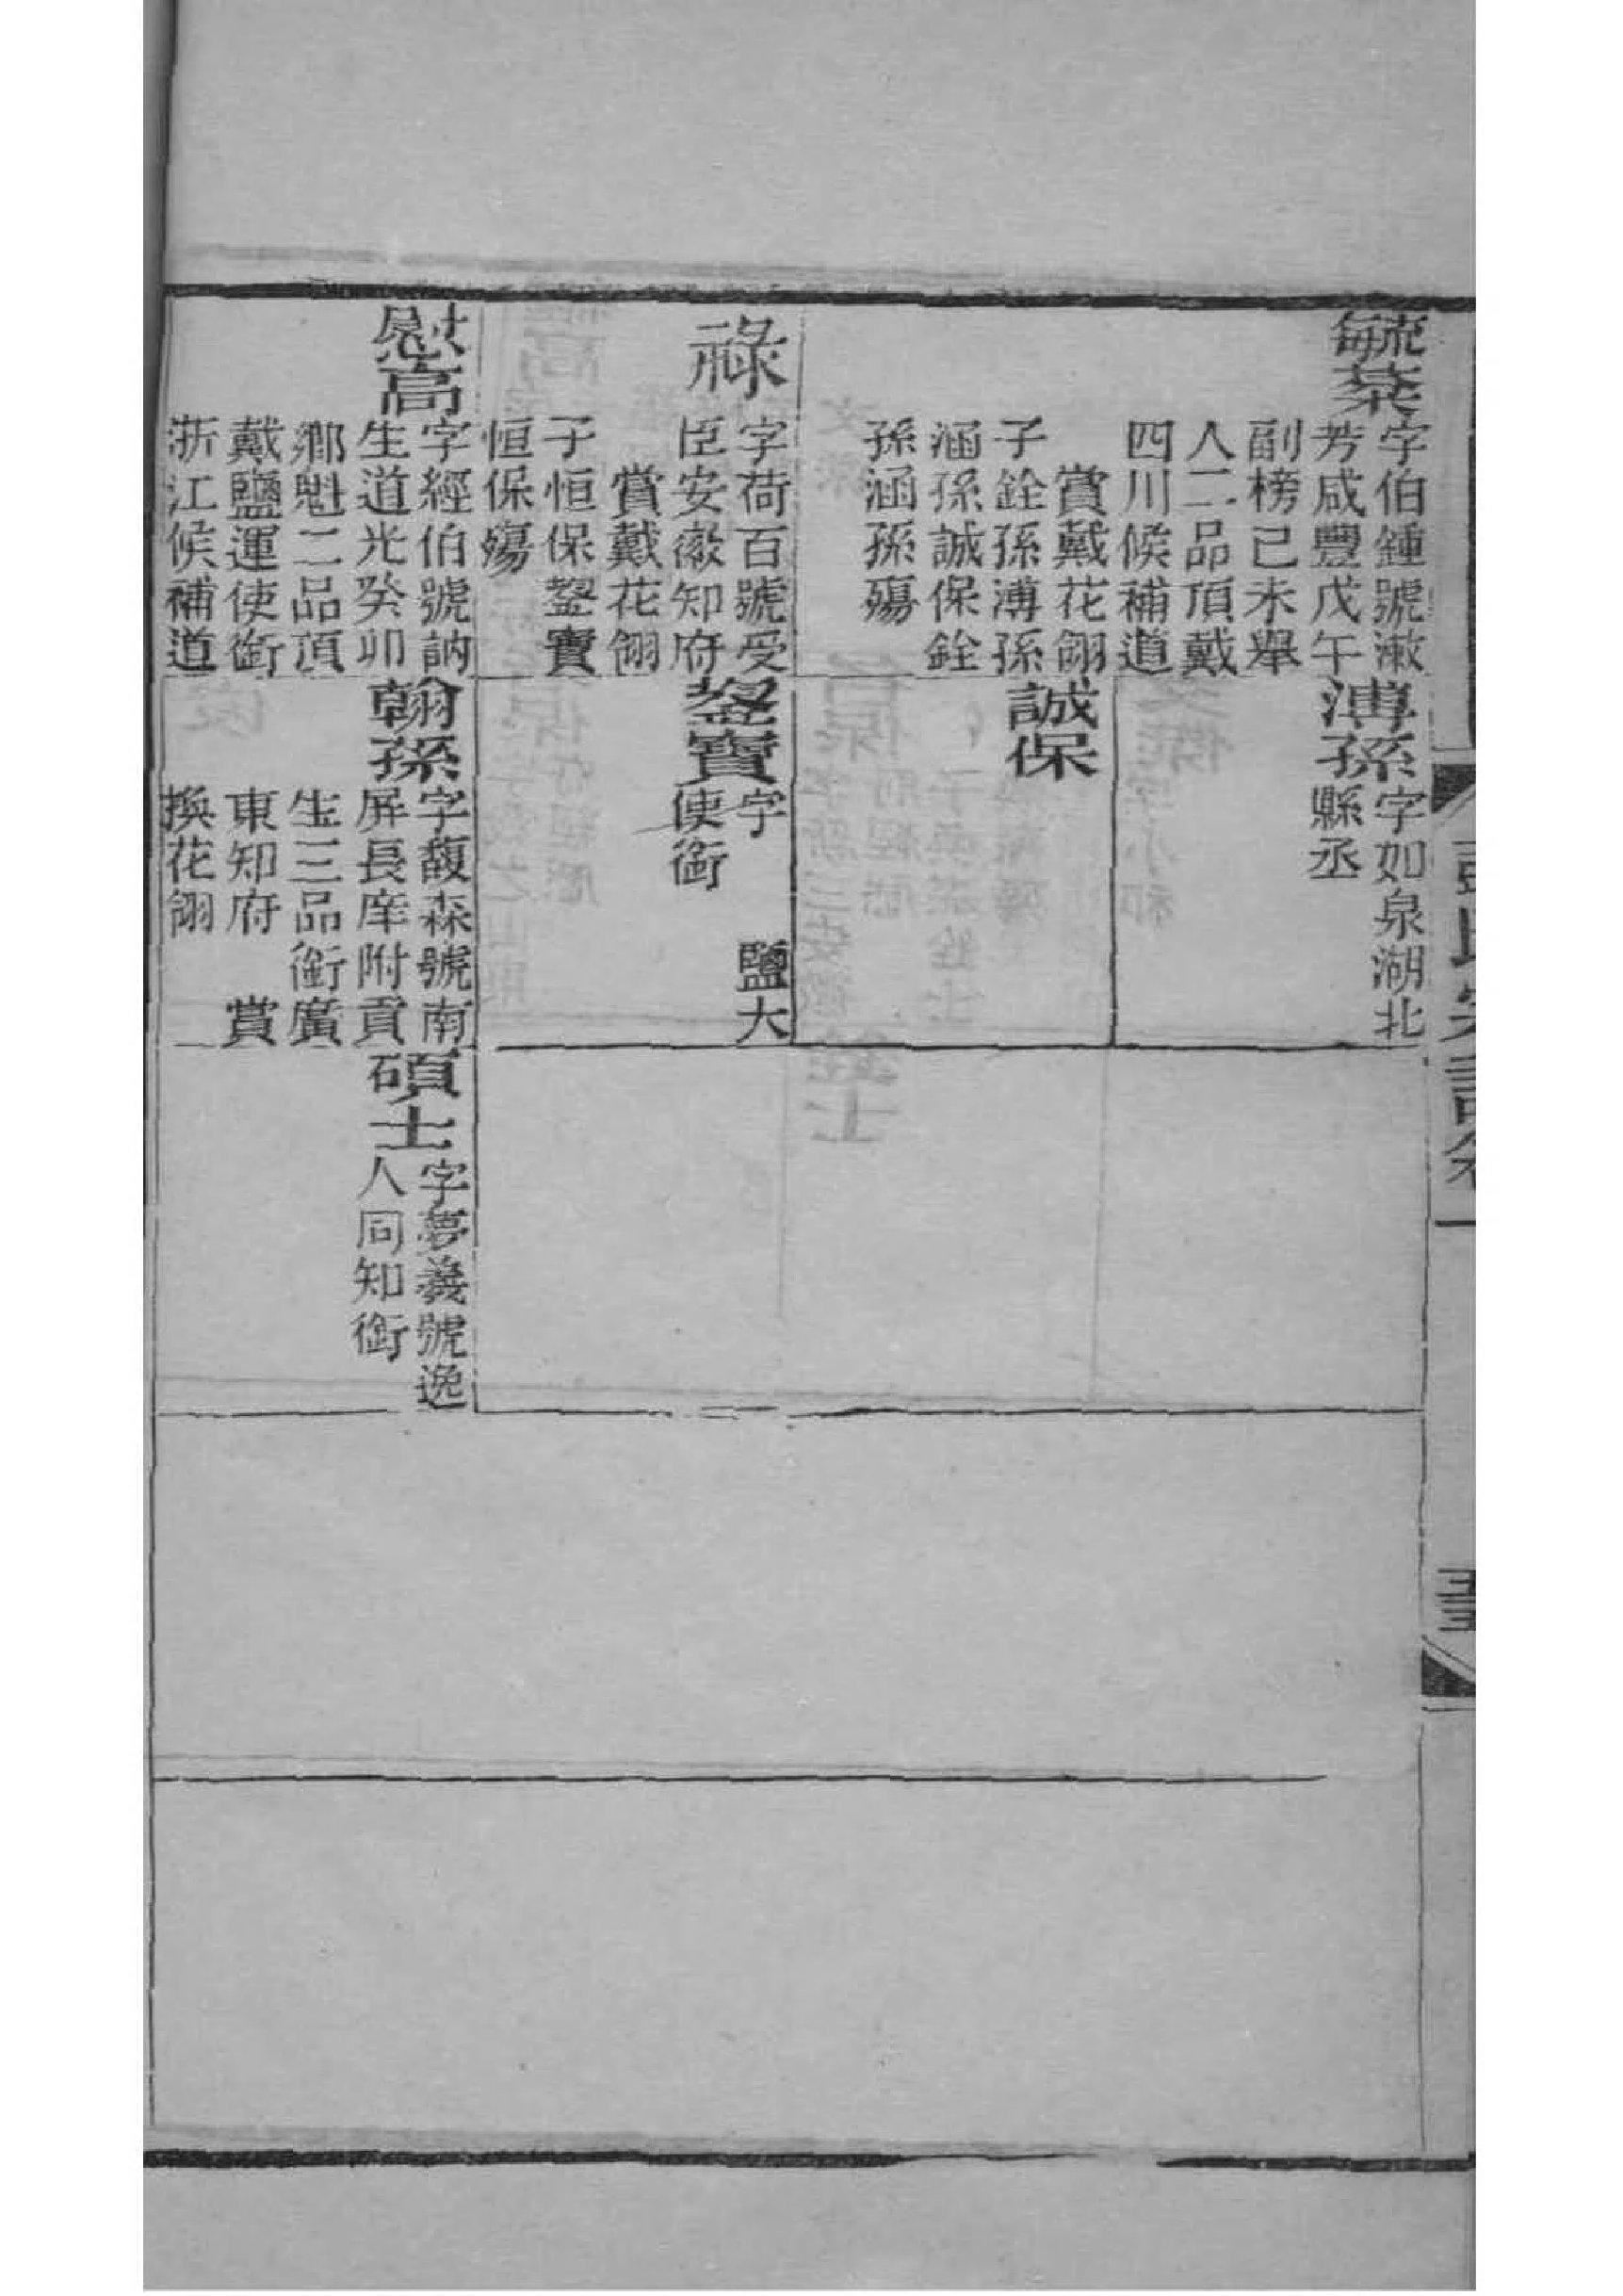 毓棻
字伯鍾號漱
芳咸豐戊午
副榜已未舉
人二品頂戴
四川候補道
賞戴花翎
子銓孫溥孫
涵孫誠保銓
孫涵孫殤
溥孫
字如泉湖北
縣丞
誠保
祿
字荷百號受
臣安徽知府
賞戴花翎
子恒保鋆寶
恒保殤
鋆寶
字 鹽大
使銜
慰高
字經伯號訥
生道光癸卯
鄉魁二品頂
戴鹽運使銜
浙江候補道
翰孫
字馥森號南
屏長庠附貢
生三品銜廣
東知府 賞
換花翎
碩士
字夢羲號逸
人同知銜